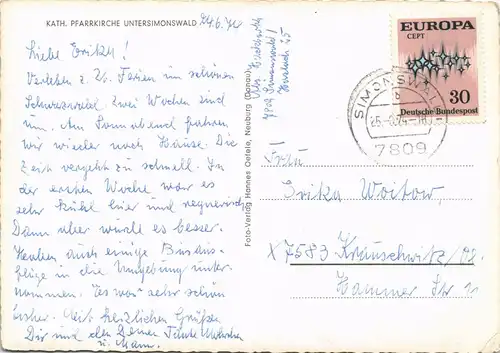 KATH. PFARRKIRCHE UNTERSIMONSWALD 24.6.74
Liebe Erika!
Verleben z. Zt. Ferien im schönen
Schwarzwald. Zwei Wochen sind
um. Am Sonnabend fahren
wir wieder nach Hause. Die
Zeit vergeht zu schnell. In
der ersten Woche war es
sehr kühl hier und regnerisch
Dann aber wurde es besser.
Haben auch einige Busaus-
flüge in die Umgebung unter-
nommen. Es war sehr schön
bisher. Mit herzlichen Grüßen
Dir und den Deinen Tante
u. Mann.
Foto-Verlag Hannes Oefele, Neuburg (Donau)
7809 Simonswald
EUROPA
CEPT
30
Deutsche Bundespost
SIMONSWALD
b
7809
Frau
Erika Woitow,
X 7583 Krauschwitz/OL
Hammer Str